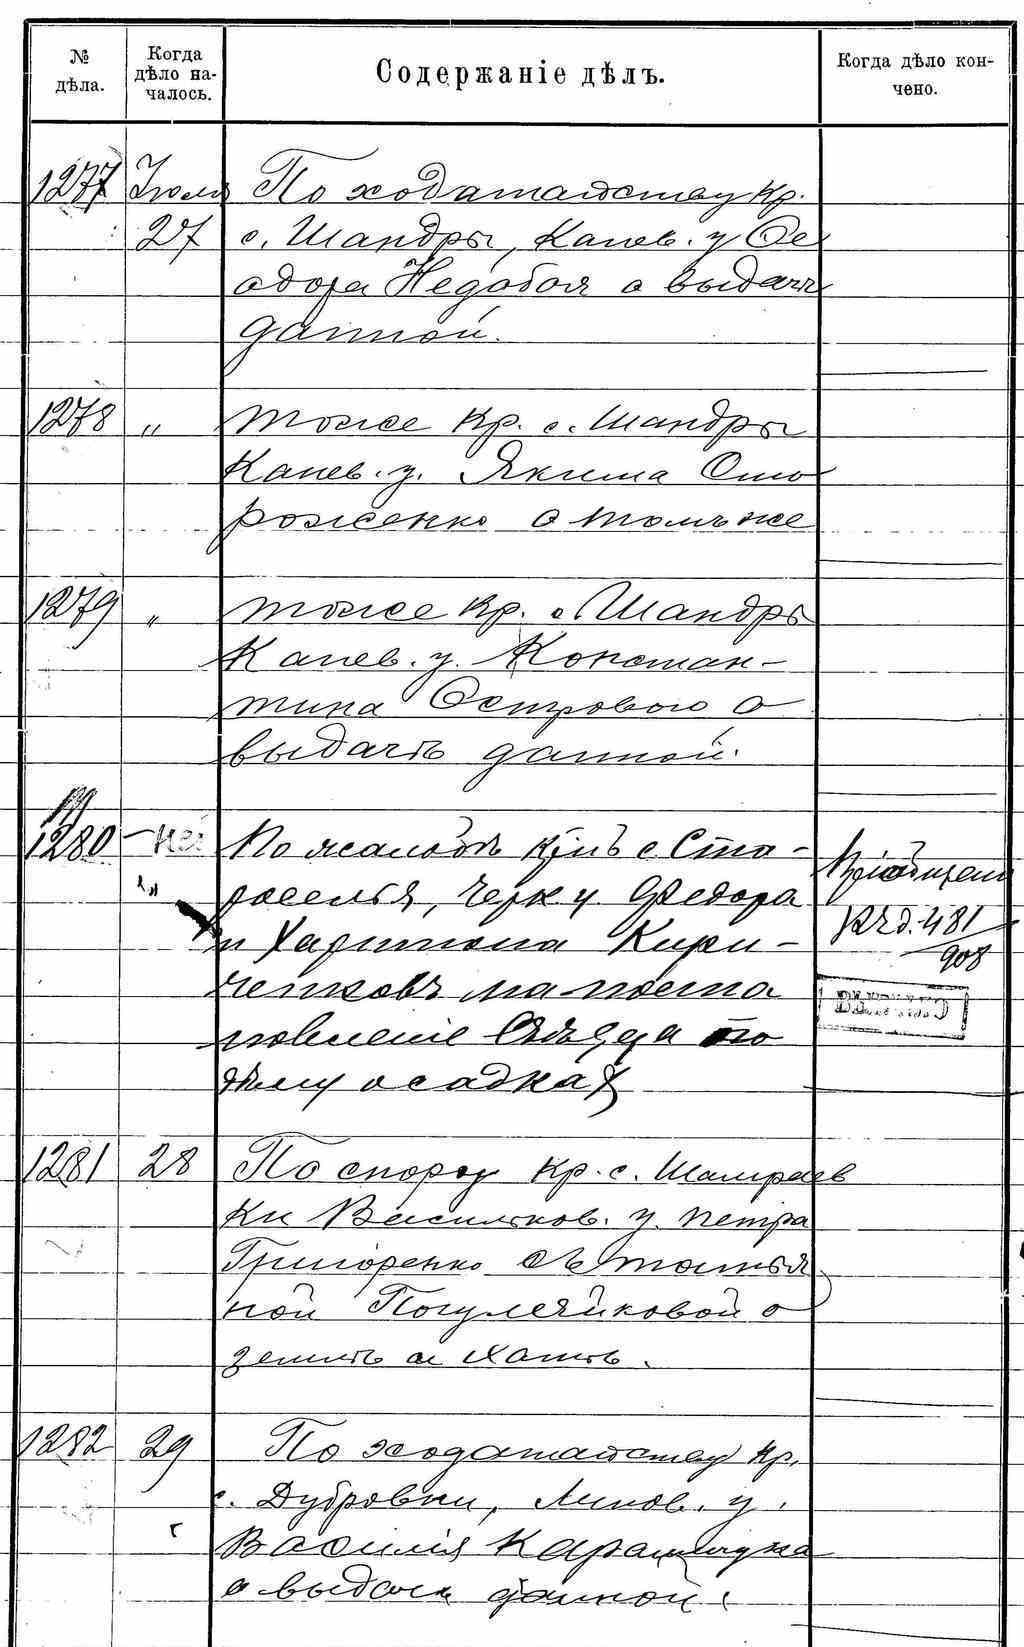 № дѣла.
Когда дѣло на-
чалось.
Содержаніе дѣлъ.
Когда дѣло кон-
чено.
1277 Іюля По ходатайству кр.
27 с. Шандры, Канев. у Ѳе
одора Недобоя о выдачѣ
данной.
1278 " тоже кр. с. Шандры
Канев. у. Якима Сто
роженко о томъ же
1279 " тоже кр. с Шандры
Канев. у. Констан-
тина Острового о
выдачѣ данной.
1280 По жалобѣ кр-нъ с. Ста-
роселья, Черк у Ѳедора
и Харитона Кири-
ченковъ на поста
новленіе Съѣзда по
дѣлу о садкахъ
Пріобщено
къ д. 481/908
1281 28 По спору кр. с. Шамраев
ки Васильков. у. Петра
Григоренко съ Татья
ной Погулейковой о
землѣ и хатѣ.
1282 29 По ходатайству кр.
с. Дубровки, Липов. у.
Василія
о выдачѣ данной.